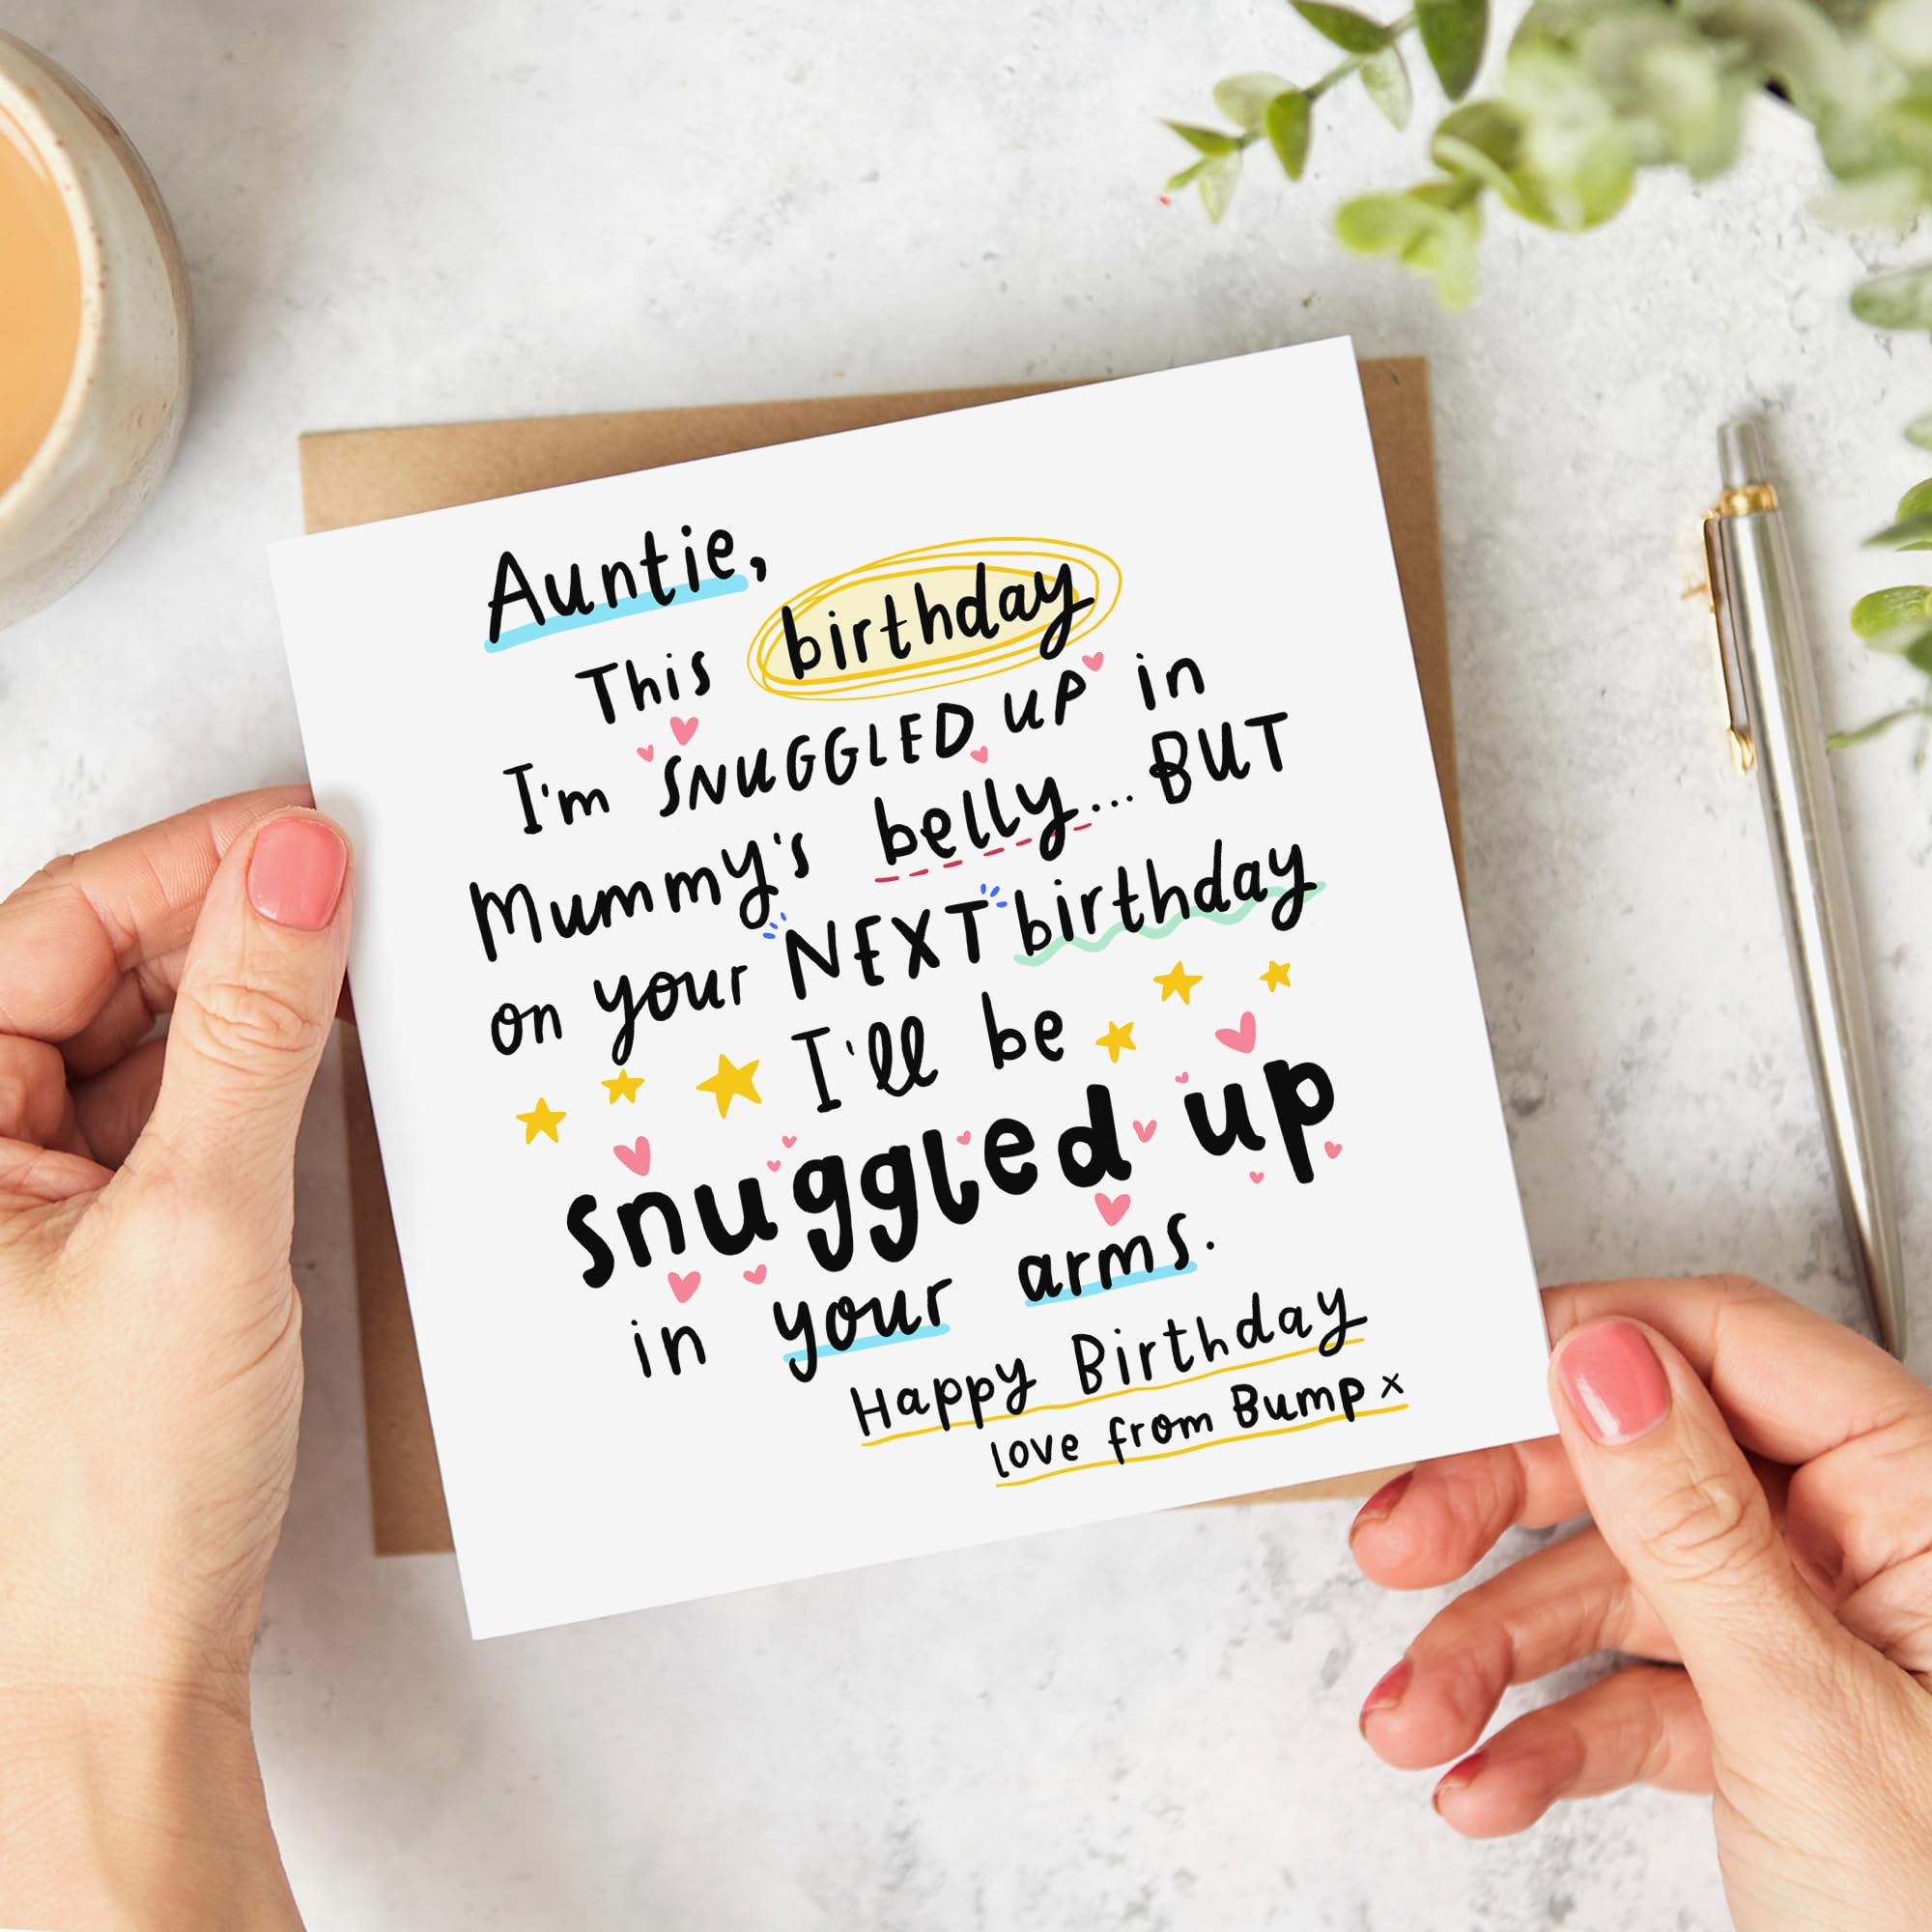 Auntie,
This birthday
I'm SNUGGLED UP in
Mummy's belly... BUT
on your NEXT birthday
I'll be
snuggled up
in your arms.
Happy Birthday
love from Bump x